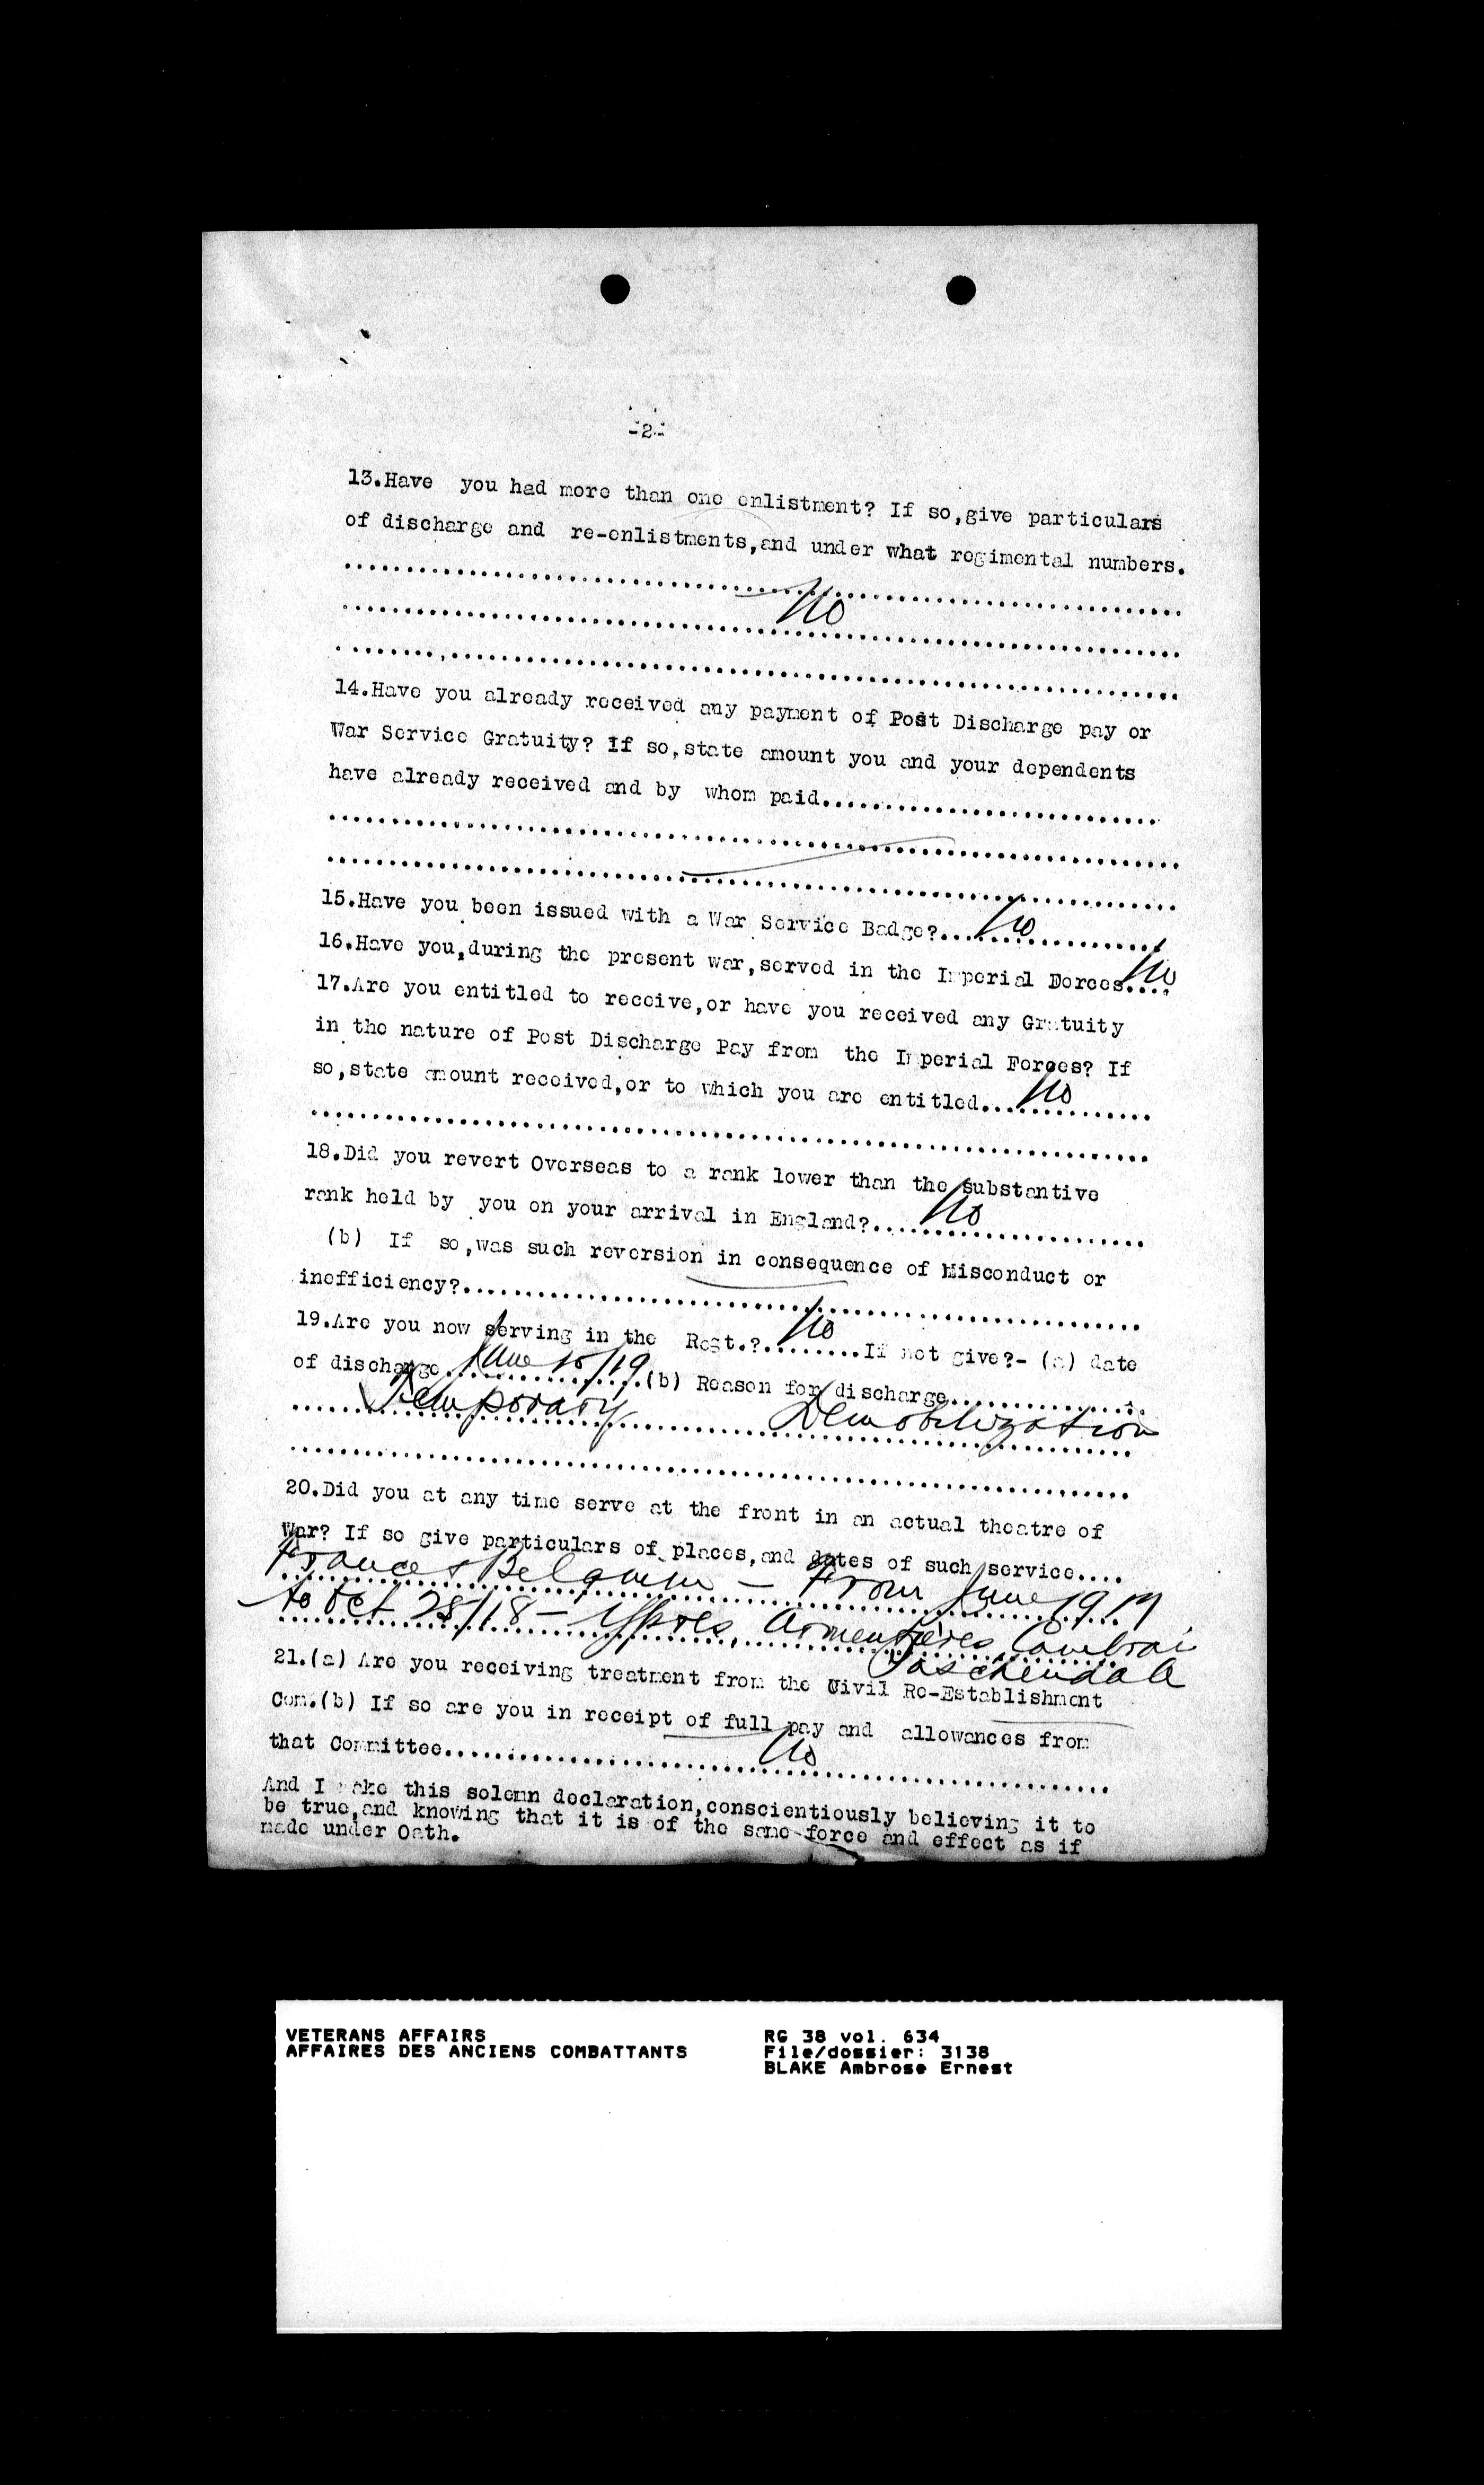 -2-
13.Have you had more than one enlistment? If so,give particulars
of discharge and re-enlistments,and under what regimental numbers.
No
14.Have you already received any payment of Post Discharge pay or
War Service Gratuity? If so,state amount you and your dependents
have already received and by whom paid..........................
15.Have you been issued with a War Service Badge?....No
16.Have you,during the present war,served in the Imperial Forces....No
17.Are you entitled to receive,or have you received any Gratuity
in the nature of Post Discharge Pay from the Imperial Forces? If
so,state amount received,or to which you are entitled...No
18.Did you revert Overseas to a rank lower than the substantive
rank held by you on your arrival in England?....No
(b) If so,was such reversion in consequence of Misconduct or
inefficiency?..................................................
19.Are you now serving in the Regt.?..No.......If not give?- (a) date
of discharge June 15/19 (b) Reason for discharge................
Temporary Demobilization
20.Did you at any time serve at the front in an actual theatre of
War? If so give particulars of places,and dates of such service....
France & Belgium - From June 1917
to Oct 28/18 - Ypres, Armentières, Cambrai
Paschendale
21.(a) Are you receiving treatment from the Civil Re-Establishment
Com.(b) If so are you in receipt of full pay and allowances from
that Committee..........No
And I make this solemn declaration,conscientiously believing it to
be true,and knowing that it is of the same force and effect as if
made under Oath.
VETERANS AFFAIRS RG 38 vol. 634
AFFAIRES DES ANCIENS COMBATTANTS File/dossier: 3138
BLAKE Ambrose Ernest